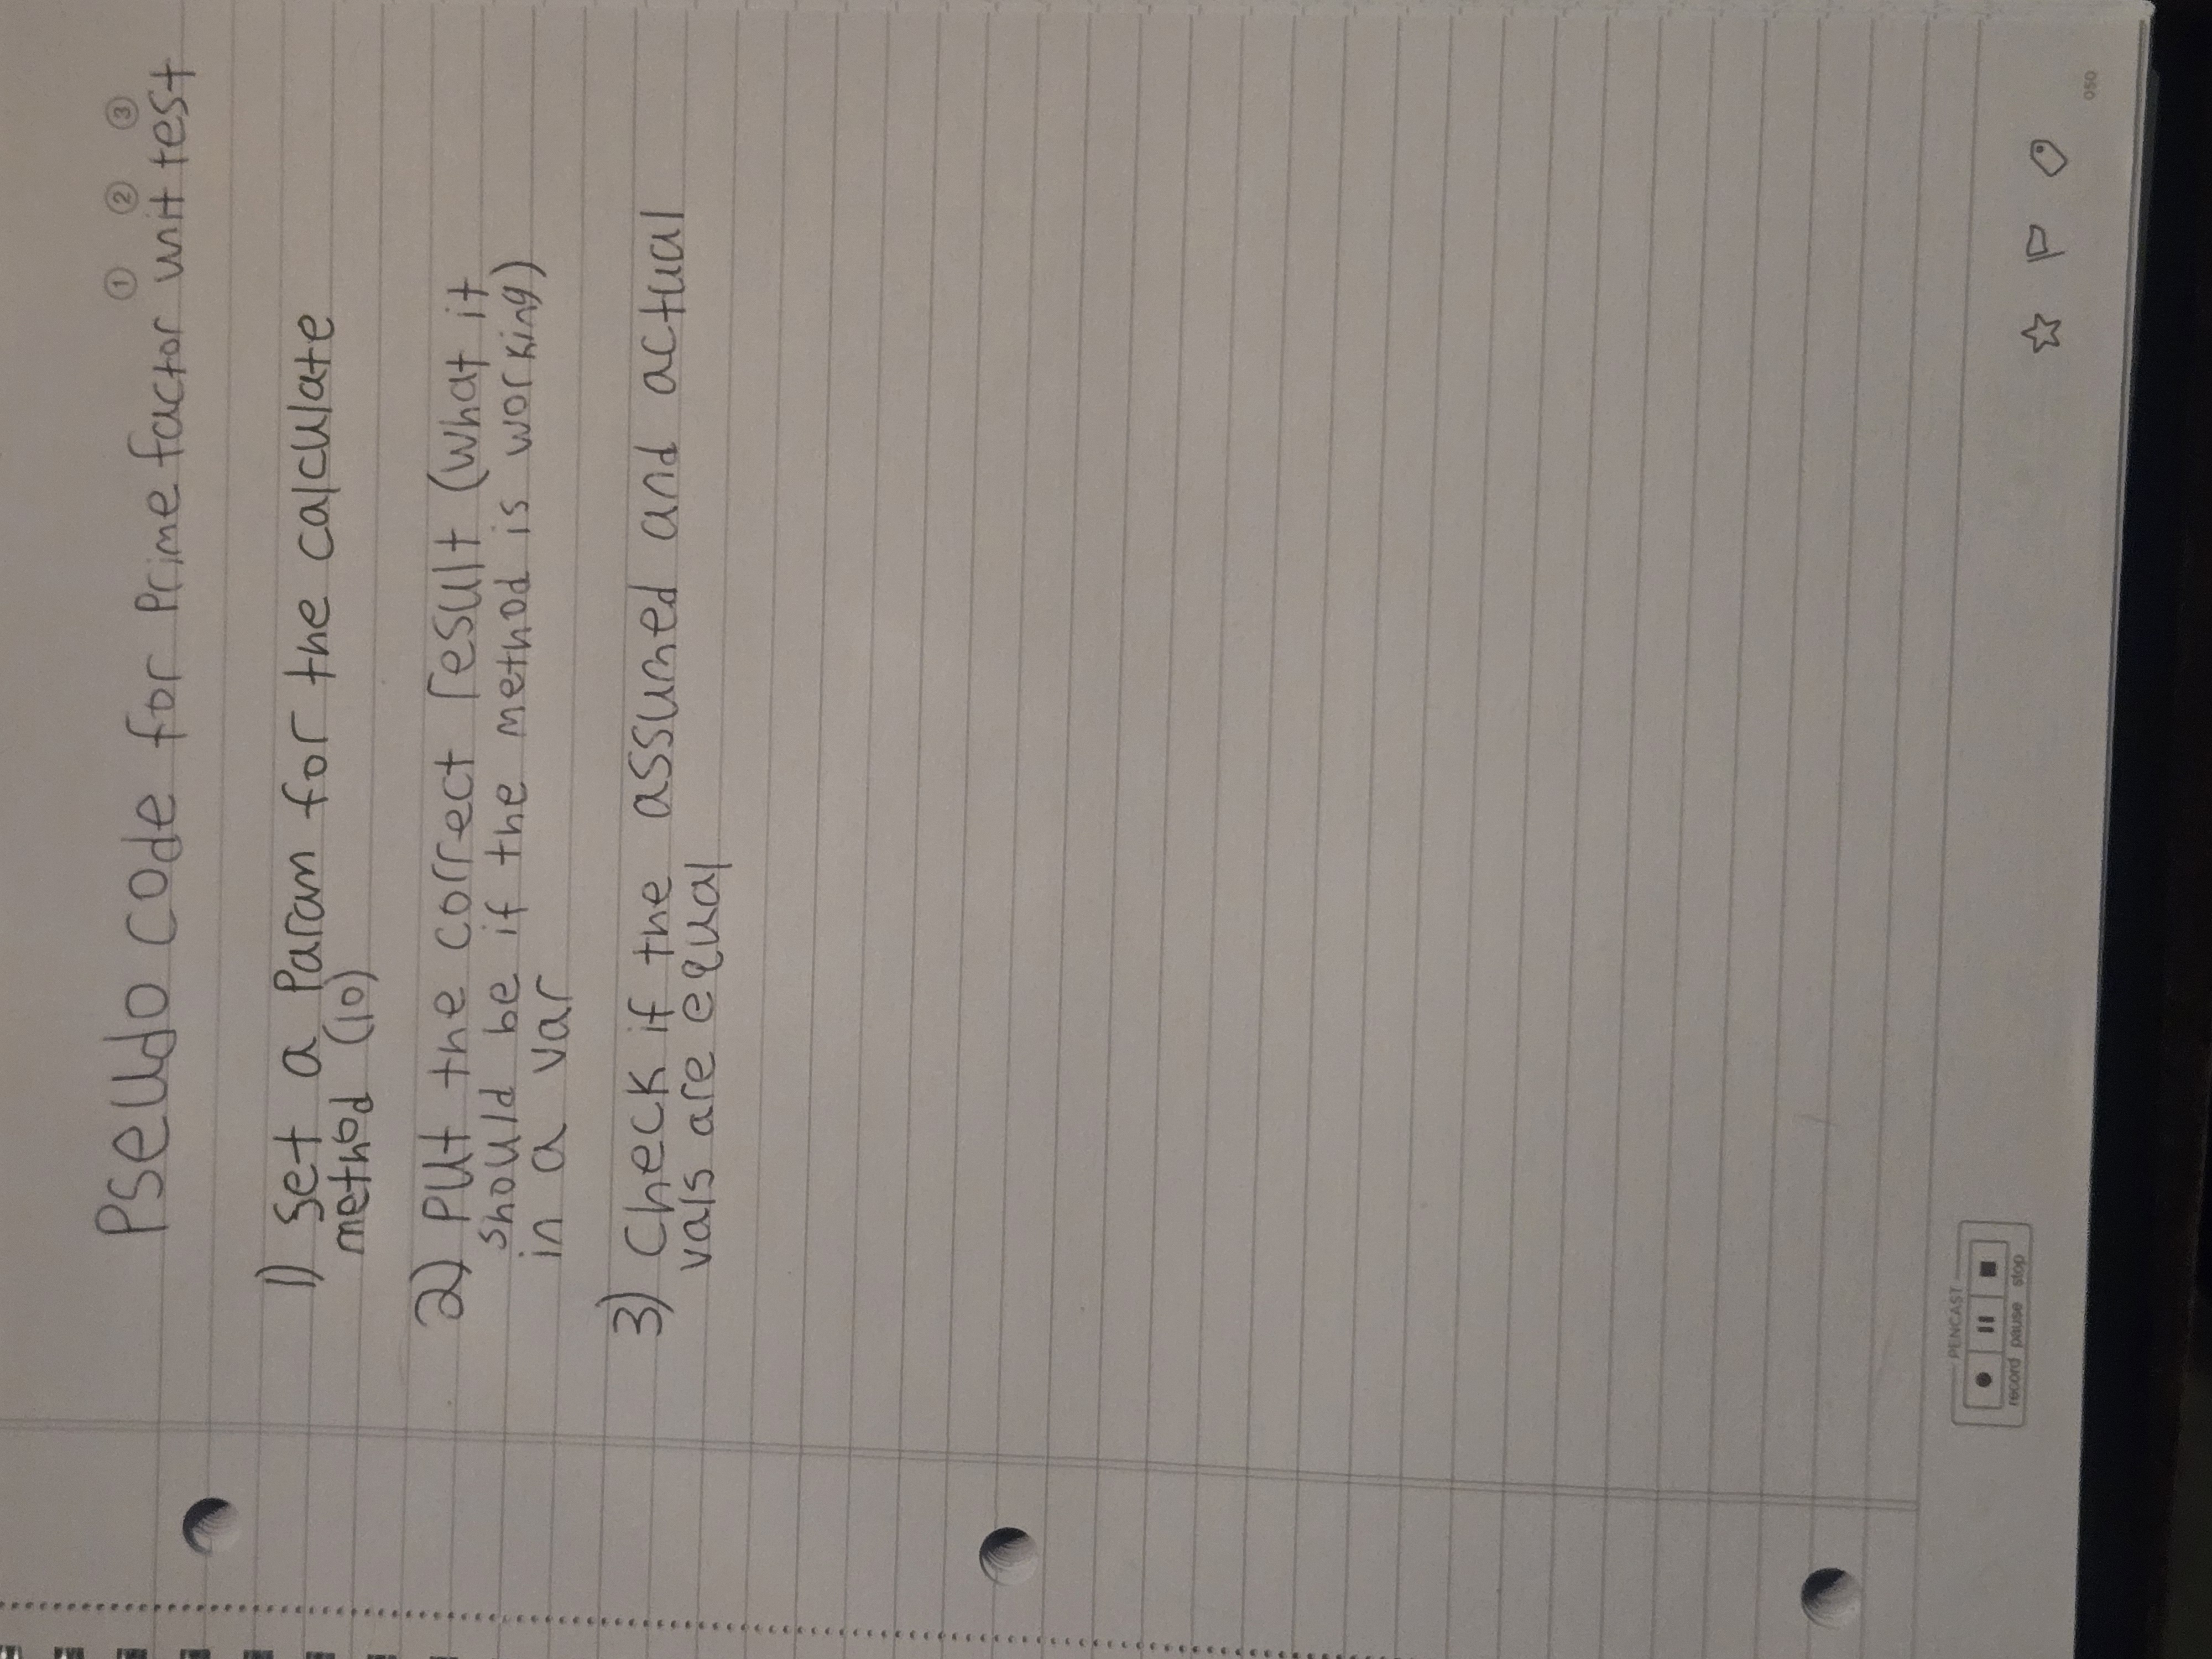 ① ② ③
Pseudo code for Prime factor unit test
1) Set a Param for the calculate
method (10)
2) Put the correct result (what it
should be if the method is working)
in a var
3) Check if the assumed and actual
vals are equal
PENCAST
record pause stop
050